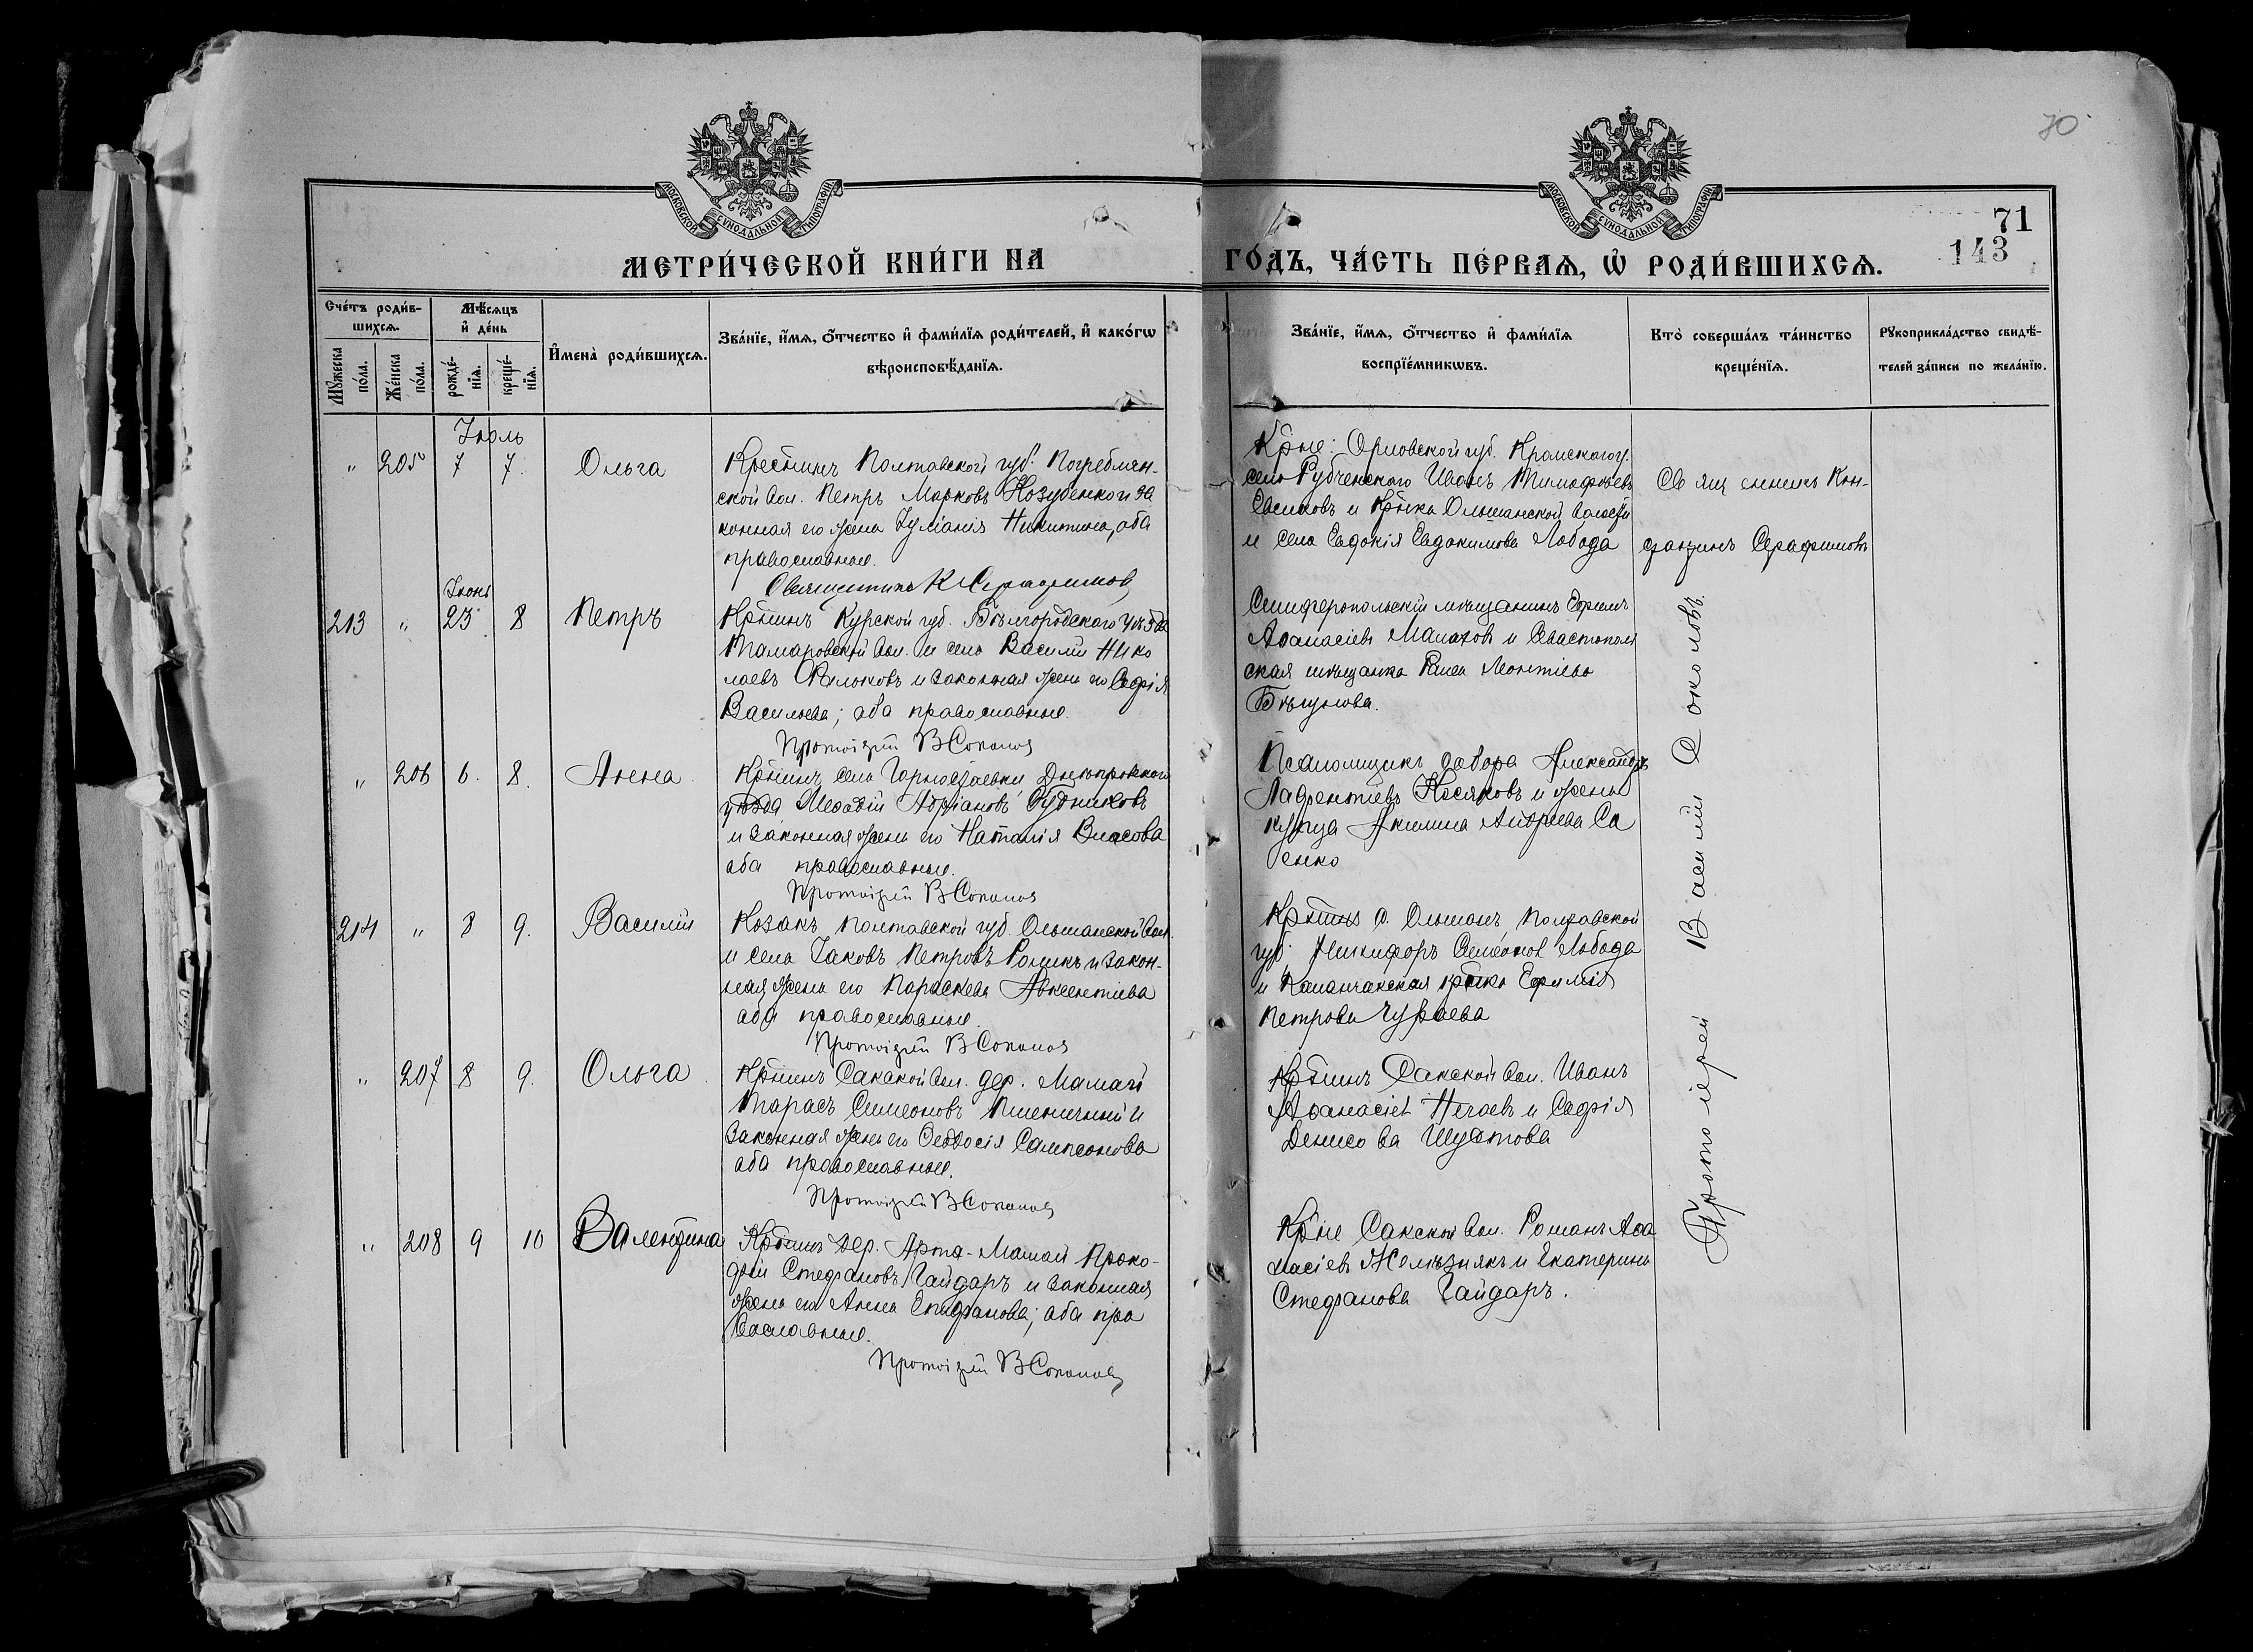 70
МОСКОВСКОЙ СУНОДАЛЬНОЙ ТИПОГРАФИИ
МОСКОВСКОЙ СУНОДАЛЬНОЙ ТИПОГРАФИИ
71
143
МЕТРИ́ЧЕСКОЙ КНИ́ГИ НА ГО́ДЪ, ЧА́СТЬ ПЕ́РВАѦ, Ѡ҆ РОДИ́ВШИХСѦ.
Сче́тъ роди́в-
шихсѧ.
Мꙋ́жеска по́ла.
Же́нска по́ла.
Мѣ́сѧцъ
и҆ де́нь
рожде́-
нїѧ.
креще́-
нїѧ.
И҆мена̀ роди́вшихсѧ.
Зва́нїе, и҆́мѧ, ѻ҆́тчество и҆ фами́лїѧ роди́телей, и҆ како́гѡ
вѣроисповѣ́данїѧ.
Зва́нїе, и҆́мѧ, ѻ҆́тчество и҆ фами́лїѧ
воспрїе́мникѡвъ.
Кто̀ соверша́лъ та́инство
креще́нїѧ.
Рꙋкоприкла́дство свидѣ́-
телей за́писи по жела́нїю.
Іюль
" 205 7 7. Ольга
Крестьинъ Полтавской губ. Погребян-
ской вол. Петръ Марковъ и за
конная его жена Іуліанія Никитина, оба
православные.
Священникъ К Серафимовъ
Крне: Орловской губ. Кромского у.
села Иванъ Тимофѣевъ
и Крнка Ольшанской волости
и села Евдокія Евдокимова Лобода
Священникъ Кон-
стантинъ Серафимовъ
Іюнь
213 " 23 8 Петръ
Крнинъ Курской губ. Бѣлгородского уѣзда
Тамаровской вол. и села Василій Нико
лаевъ Фальковъ и законная жена его Софія
Васильева; оба православные.
Протоіерей В Соколов
Симферопольскій мѣщанинъ Ефимъ
Афанасіевъ Малаховъ и Севастополь
ская мѣщанка Раиса Леонтіева
Бѣгунова.
" 206 6. 8. Анна.
Крнинъ села Горностаевки Днѣпровского
уѣзда Мефодій Адріановъ Рудниковъ
и законная жена его Наталія Власова
оба православные.
Протоіерей В Соколов
Псаломщикъ собора Александръ
Лаврентіевъ Косяковъ и жена
купца Акилина Андреева Са
енко
214 " 8 9. Василій
Козакъ Полтавской губ. Ольшанской вол.
и села Іаковъ Петровъ и закон-
ная жена его Параскева Авксентіева
оба православные.
Протоіерей В Соколов
Крнинъ с. Ольшанъ Полтавской
губ. Никифоръ Симеонов Лобода
и Каланчакская крнка Ефимія
Петрова Чураева
" 207 8 9. Ольга.
Крнинъ Сакской вол. дер. Мамай
Тарасъ Симеоновъ Пшеничный и
законная жена его Ѳеодосія Сампсонова
оба православные.
Протоіерей В Соколов
Крнинъ Сакской вол. Иванъ
Афанасіев Нечаевъ и Софія
Денисова Шустова
" 208 9 10 Валентина
Крнинъ дер. Арта-Мамай Проко-
фій Стефановъ Гайдаръ и законная
жена его Анна Епифанова; оба пра
вославные.
Протоіерей В Соколов
Крне Сакской вол. Романъ Афа
насіевъ Желѣзнякъ и Екатерина
Стефанова Гайдаръ.
Протоіерей Василій Соколовъ.